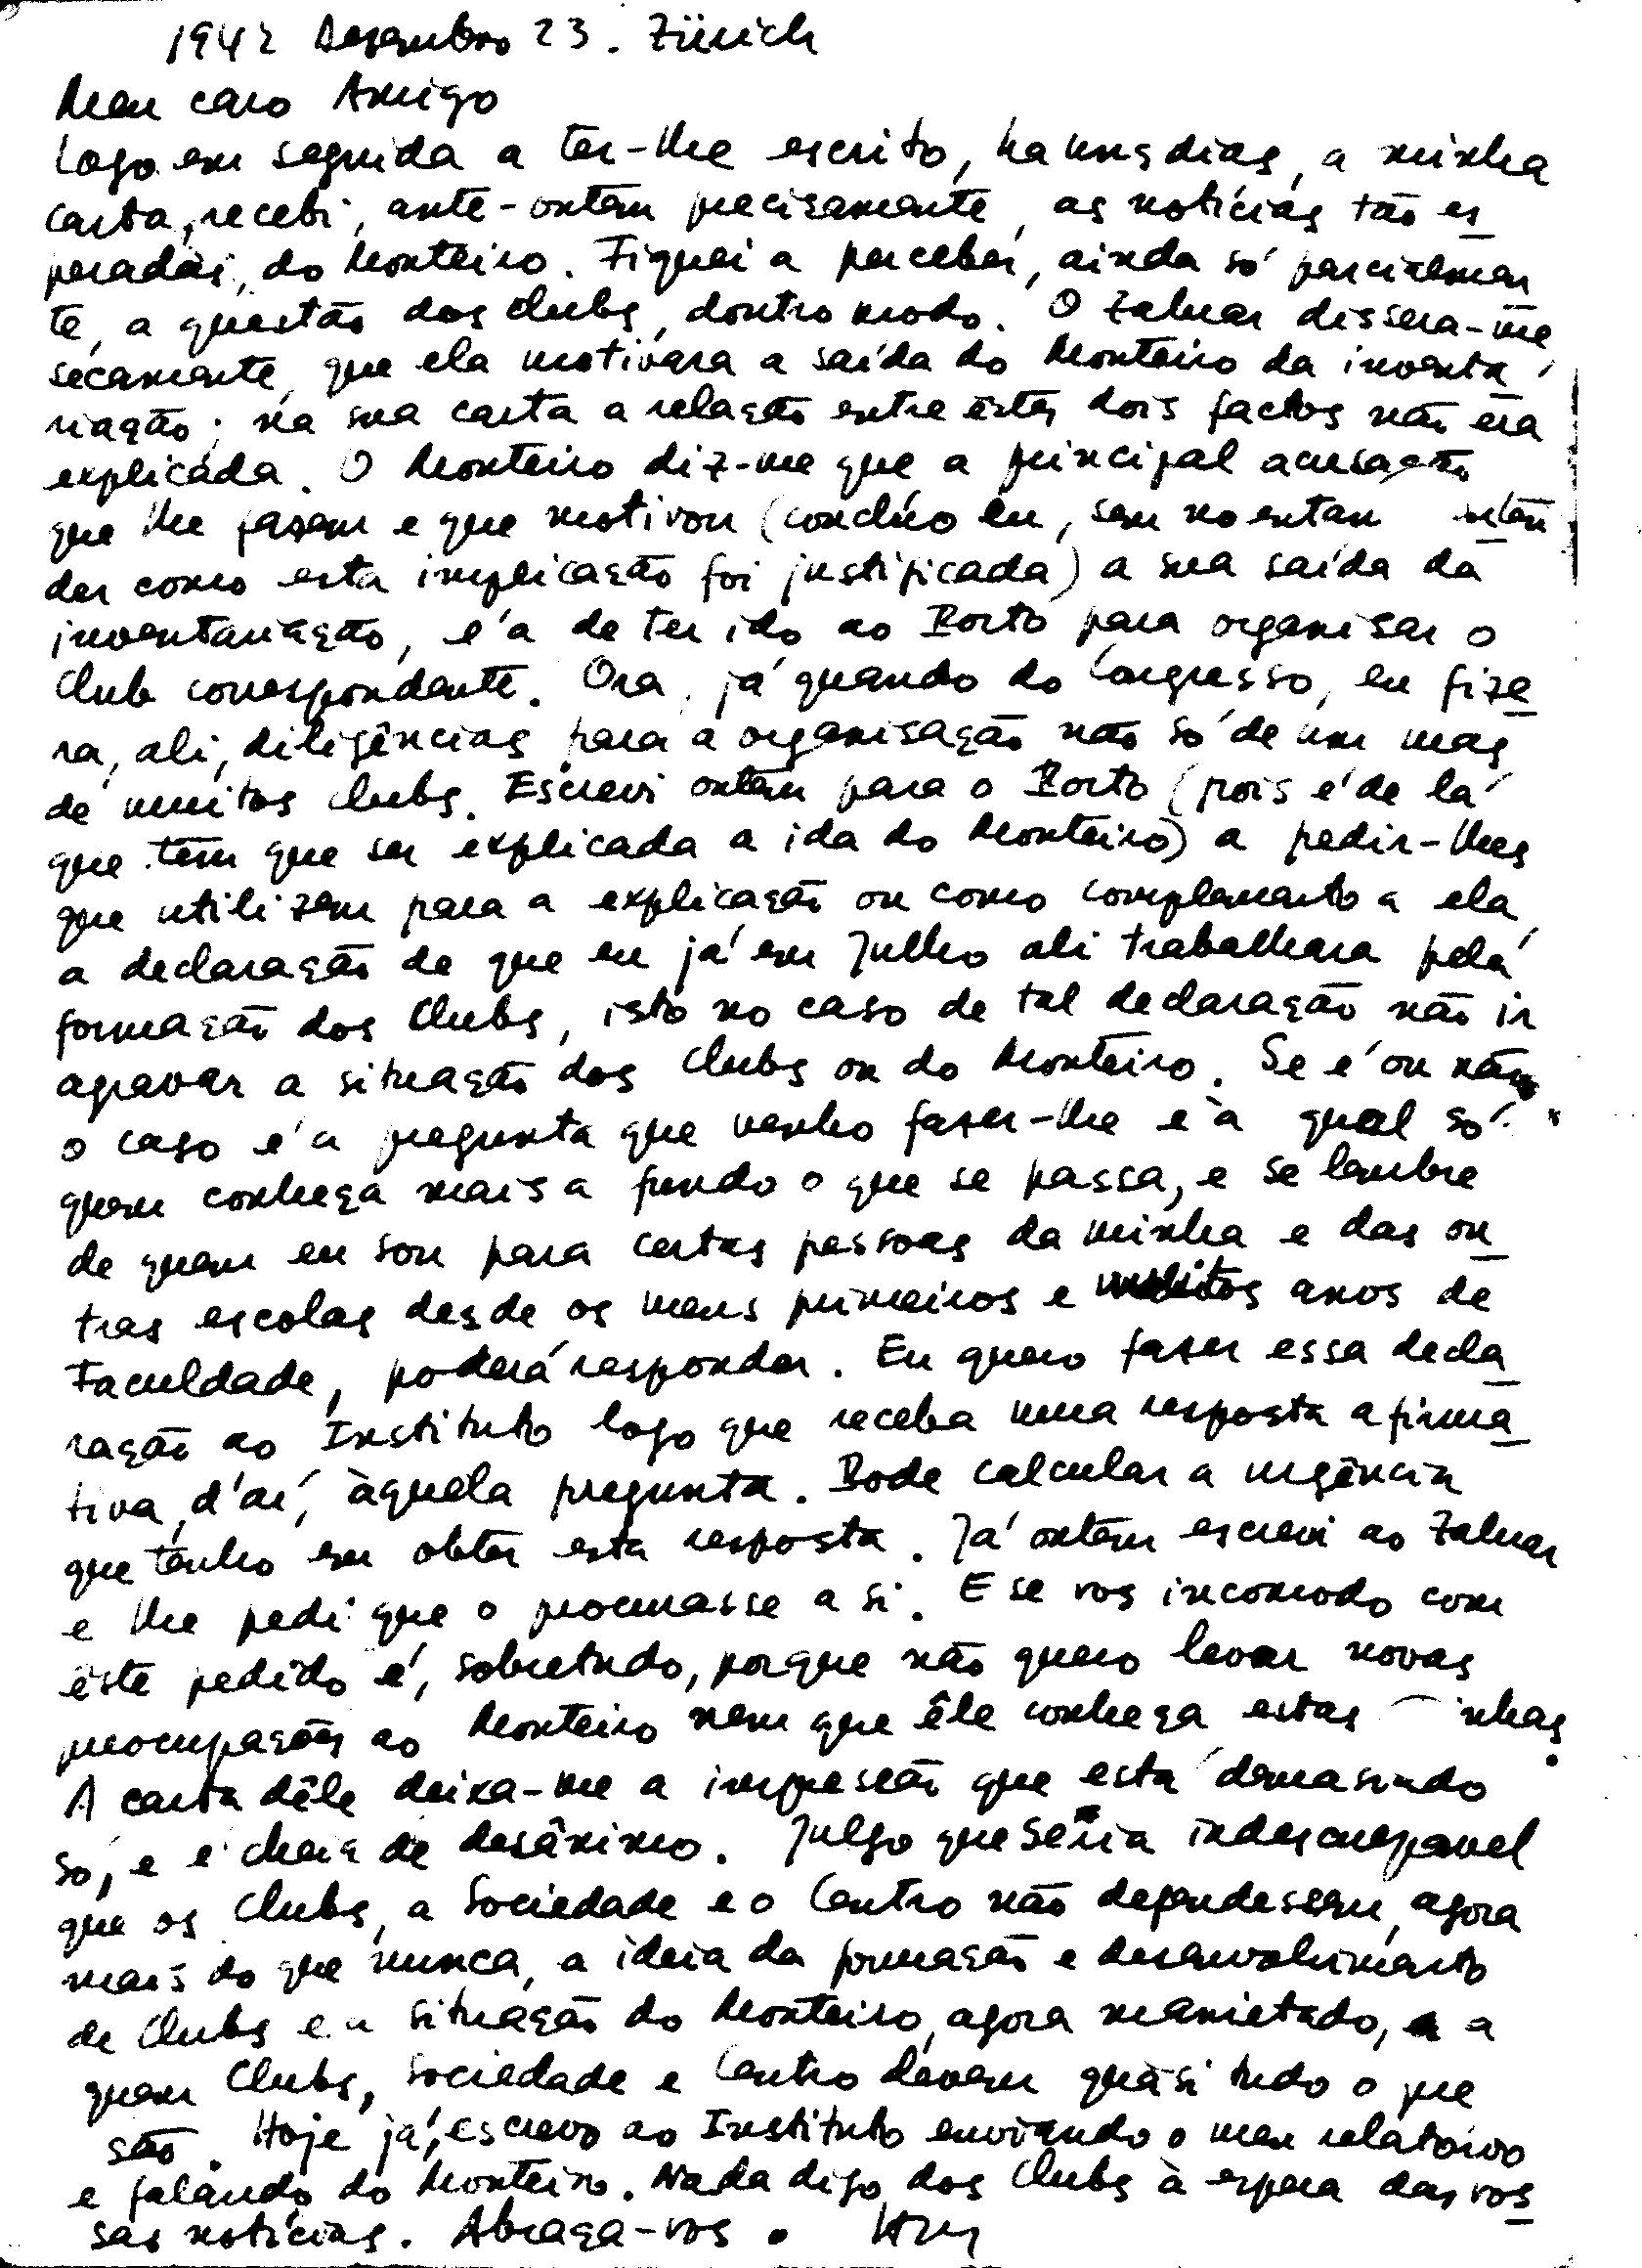 1942 Desembro 23. Zürich
Meu caro Amigo
Logo em seguida a ter-lhe escrito, ha uns dias, a minha
carta, recebi, ante-ontem precisamente, as notícias tão es
peradas, do Monteiro. Fiquei a perceber, ainda só parcialmen
te, a questão dos clubs, doutro modo. O Zaluar dissera-me,
secamente, que ela motivara a saída do Monteiro da inventa
riação; na sua carta a relação entre êstes dois factos não era
explicada. O Monteiro diz-me que a principal acusação
que lhe fazem e que motivou (concluo eu, sem no entan
der como esta implicação foi justificada) a sua saída da
inventariação, é a de ter ido ao Porto para organisar o
Club correspondente. Ora, já quando do Congresso, eu fize
ra, ali, diligências para a organisação não só de um mas
de muitos clubs. Escrevi ontem para o Porto (pois é de lá
que tem que ser explicada a ida do Monteiro) a pedir-lhes
que utilizem para a explicação ou como complemento a ela
a declaração de que eu já em Julho ali trabalhara pela
formação dos Clubs, isto no caso de tal declaração não ir
agravar a situação dos Clubs ou do Monteiro. Se é ou não
o caso é a pregunta que venho fazer-lhe e à qual só
quem conheça mais a fundo o que se passa, e se lembre
de quem eu sou para certas pessoas da minha e das ou
tras escolas desde os meus primeiros e muitos anos de
Faculdade, poderá responder. Eu quero fazer essa decla
ração ao Instituto logo que receba uma resposta afirma
tiva, d'aí, àquela pregunta. Pode calcular a urgência
que tenho em obter esta resposta. Já ontem escrevi ao Zaluar
e lhe pedi que o procurasse a si. E se vos incomodo com
êste pedido é, sobretudo, porque não quero levar novas
preocupações ao Monteiro nem que êle conheça estas
A carta dêle deixa-me a impressão que está demasiado
só, e é cheia de desânimo. Julgo que seria indesculpavel
que os Clubs, a Sociedade e o Centro não defendessem, agora
mais do que nunca, a ideia da formação e desenvolvimento
de Clubs e a situação do Monteiro, agora manietado, a
quem Clubs, Sociedade e Centro devem quàsi tudo o que
são. Hoje já, escrevo ao Instituto enviando o meu relatório
e falando do Monteiro. Nada digo dos Clubs à espera das vos
sas notícias. Abraça-vos o